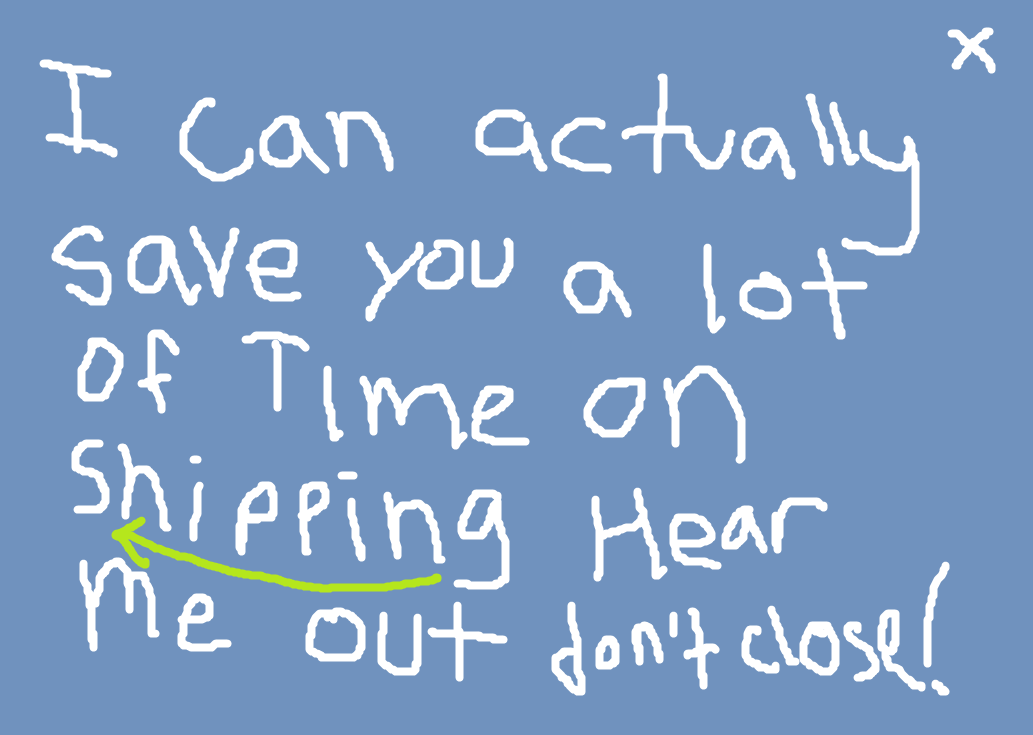 X
I can actually
save you a lot
of Time on
shipping Hear
me out don't close!